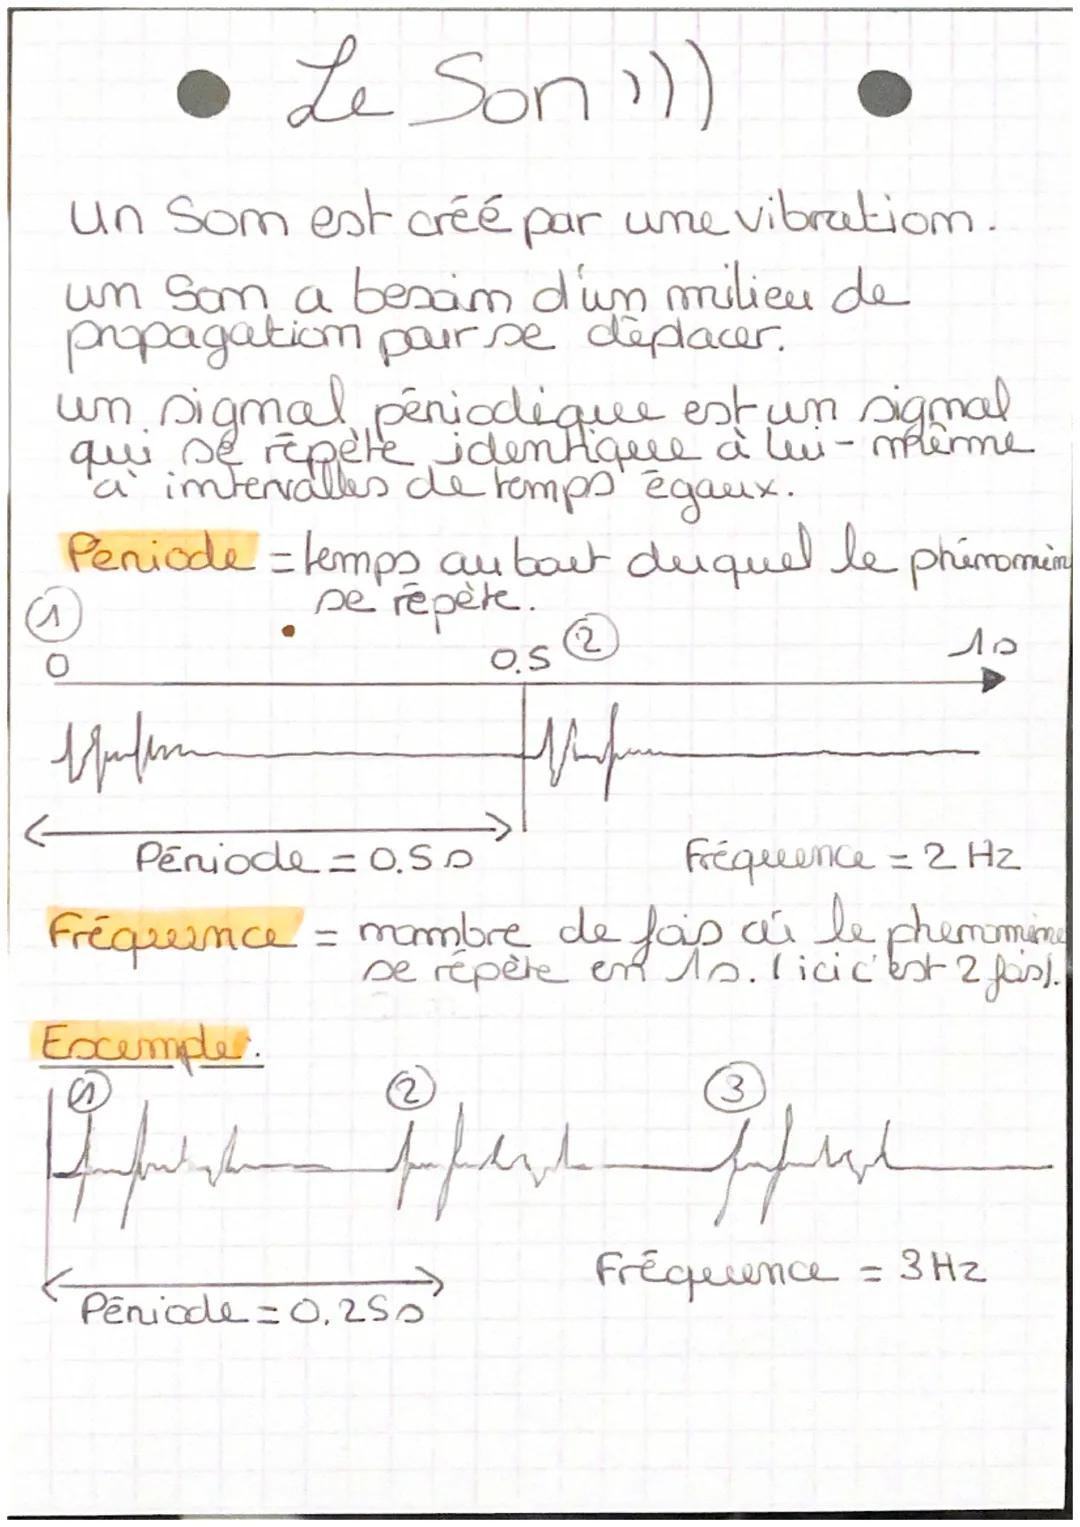 Le Son )))
un Son est créé par une vibration.
un Son a besoin d'un milieu de
propagation pour se déplacer.
un signal périodique est un signal
qui se répète identique à lui-même
à intervalles de temps égaux.
Période = temps au bout duquel le phénomèn
se répète.
1
0 0.5 2 1s
Période = 0.5s Fréquence = 2 Hz
Fréquence = nombre de fois où le phenomène
se répète en 1s. (ici c'est 2 fois).
Excemple:
1 2 3
Fréquence = 3Hz
Période = 0.25s